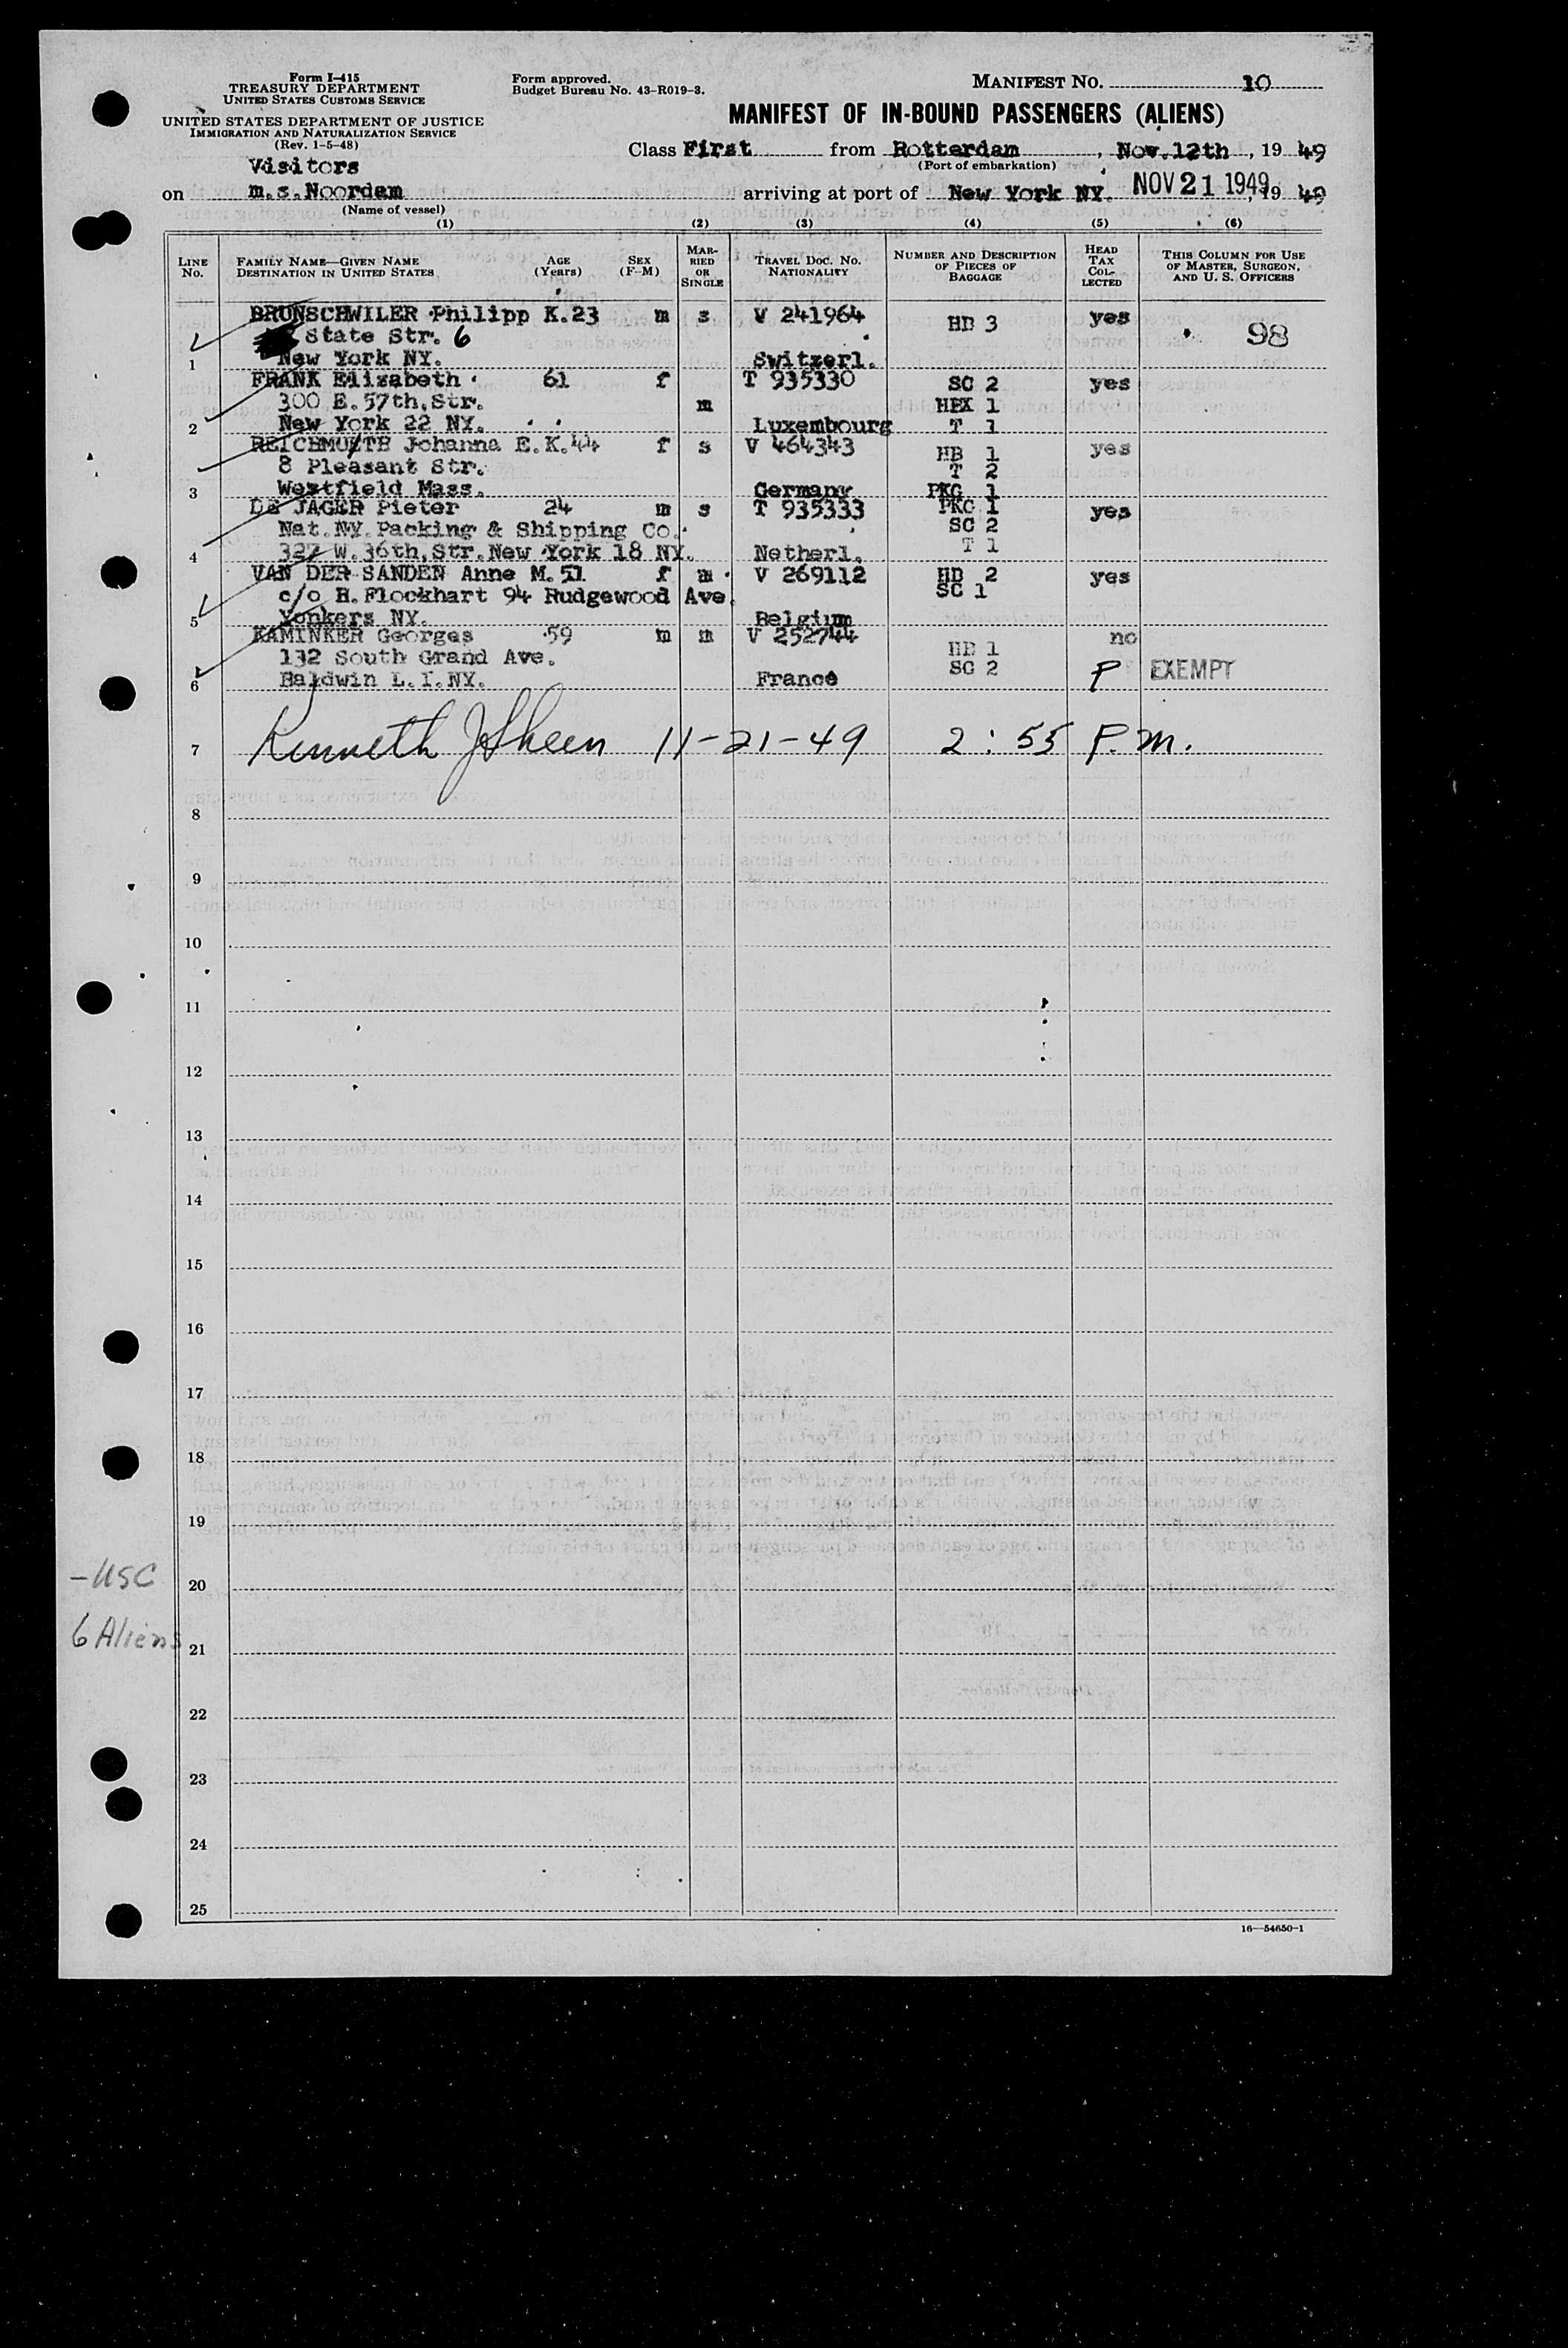 Form I-415
TREASURY DEPARTMENT
UNITED STATES CUSTOMS SERVICE
UNITED STATES DEPARTMENT OF JUSTICE
IMMIGRATION AND NATURALIZATION SERVICE
(Rev. 1-5-48)
Form approved.
Budget Bureau No. 43-R019-3.
MANIFEST NO. 10
MANIFEST OF IN-BOUND PASSENGERS (ALIENS)
Visitors
Class First from Rotterdam, Nov.12th, 19 49
(Port of embarkation)
on m.s.Noordam arriving at port of New York NY. NOV 21 1949, 19 49
(Name of vessel)
(1) (2) (3) (4) (5) (6)
LINE No. FAMILY NAME—GIVEN NAME DESTINATION IN UNITED STATES AGE (Years) SEX (F-M) MARRIED OR SINGLE TRAVEL DOC. NO. NATIONALITY NUMBER AND DESCRIPTION OF PIECES OF BAGGAGE HEAD TAX COLLECTED THIS COLUMN FOR USE OF MASTER, SURGEON, AND U. S. OFFICERS
BRUNSCHWILER Philipp K. 23 m s V 241964 HB 3 yes 98
State Str. 6
1 New York NY. Switzerl.
FRANK Elizabeth 61 f T 935330 SC 2 yes
300 E. 57th.Str. m HBX 1
2 New York 22 NY. Luxembourg T 1
REICHMUTH Johanna E.K. 44 f s V 464343 HB 1 yes
8 Pleasant Str. T 2
3 Westfield Mass. Germany PKG 1
De JAGER Pieter 24 m s T 935333 PKG 1 yes
Nat.NY.Packing & Shipping Co. SC 2
4 327 W. 36th.Str.New York 18 NY. Netherl. T 1
VAN DER SANDEN Anne M. 51 f m V 269112 HB 2 yes
c/o H. Flockhart 94 Rudgewood Ave. SC 1
5 Yonkers NY. Belgium
KAMINKER Georges 59 m m V 252744 HB 1 no
132 South Grand Ave. SC 2 P EXEMPT
6 Baldwin L.I.NY. France
7 Kenneth J Sheen 11-21-49 2:55 P.M.
8
9
10
11
12
13
14
15
16
17
18
19
-USC 20
6 Aliens 21
22
23
24
25
16—54650-1